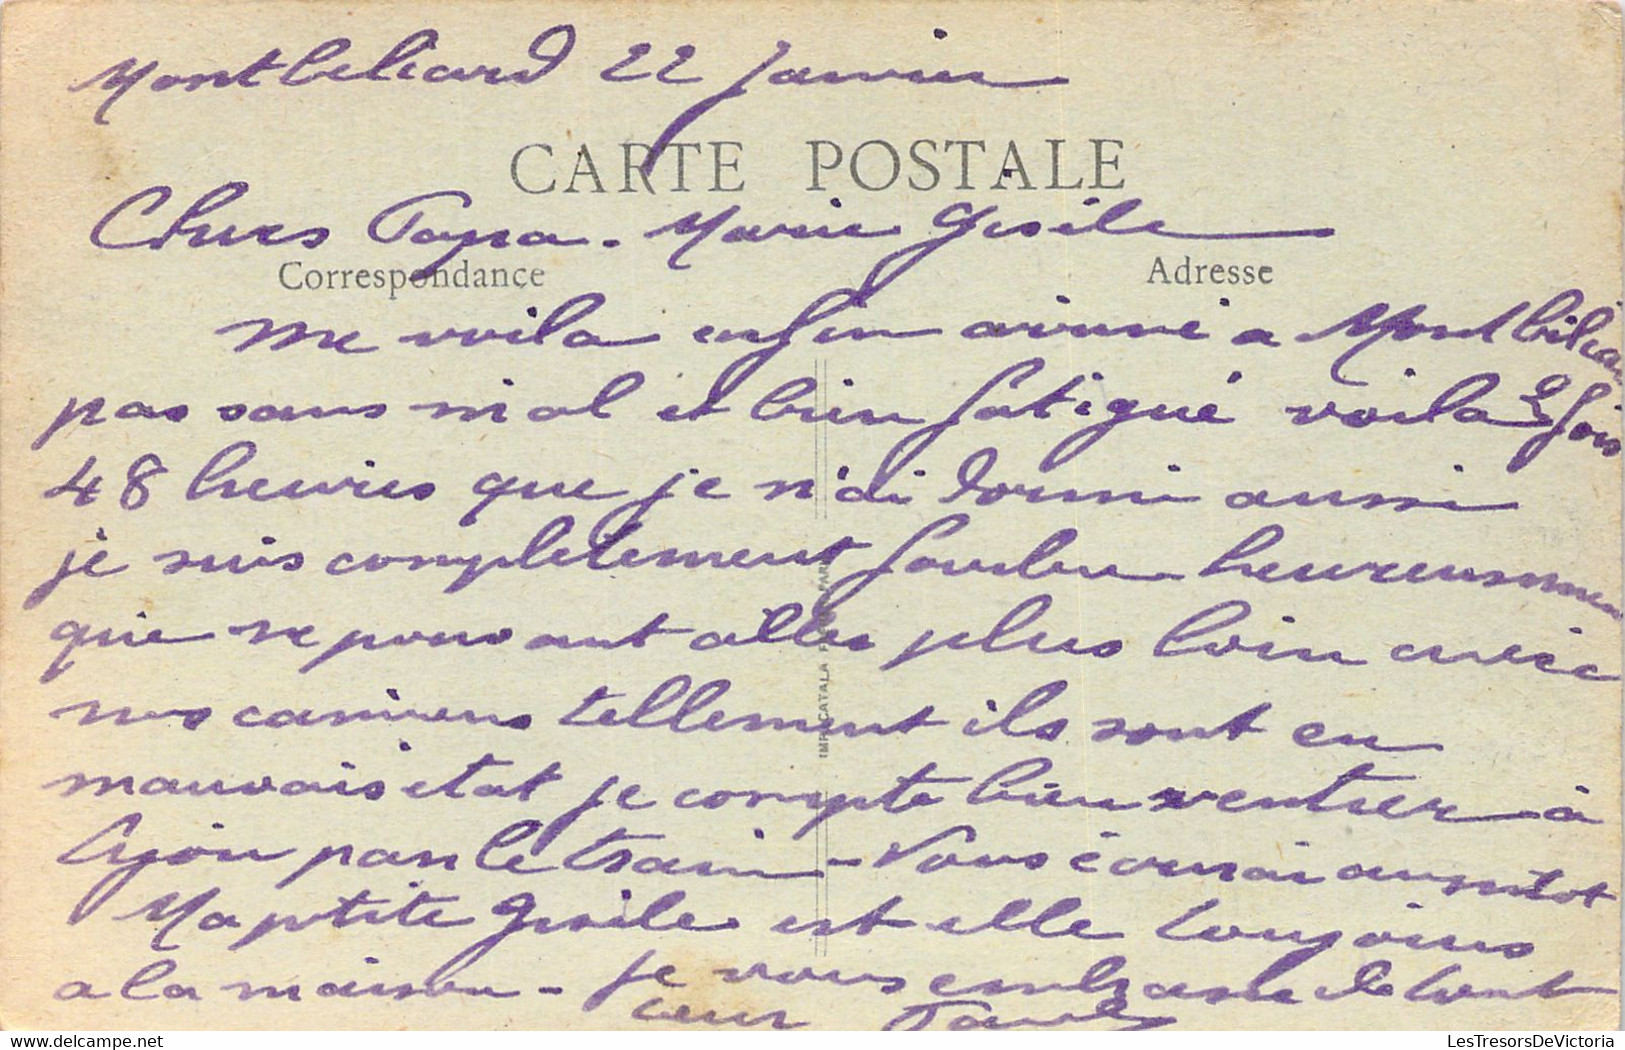 Montbeliard 22 Janvier
CARTE POSTALE
Chers Papa. Marie Gisile
Correspondance
Adresse
me voila enfin arrivé a Montbéliar
pas sans mal et bien fatigué voila 2 fois
48 heures que je n'ai dormi aussi
je suis completement fourbu heureusement
que ne pouvant aller plus loin avec
nos camions tellement ils sont en
mauvais etat je compte bien rentrer à
par le train - Vous écrirai aussitot
Ma ptite Gisile est elle toujours
a la maison - je vous embrasse de tout
cœur Paul
IMP. CATALA PARIS
LesTresorsDeVictoria on Delcampe.net
LesTresorsDeVictoria